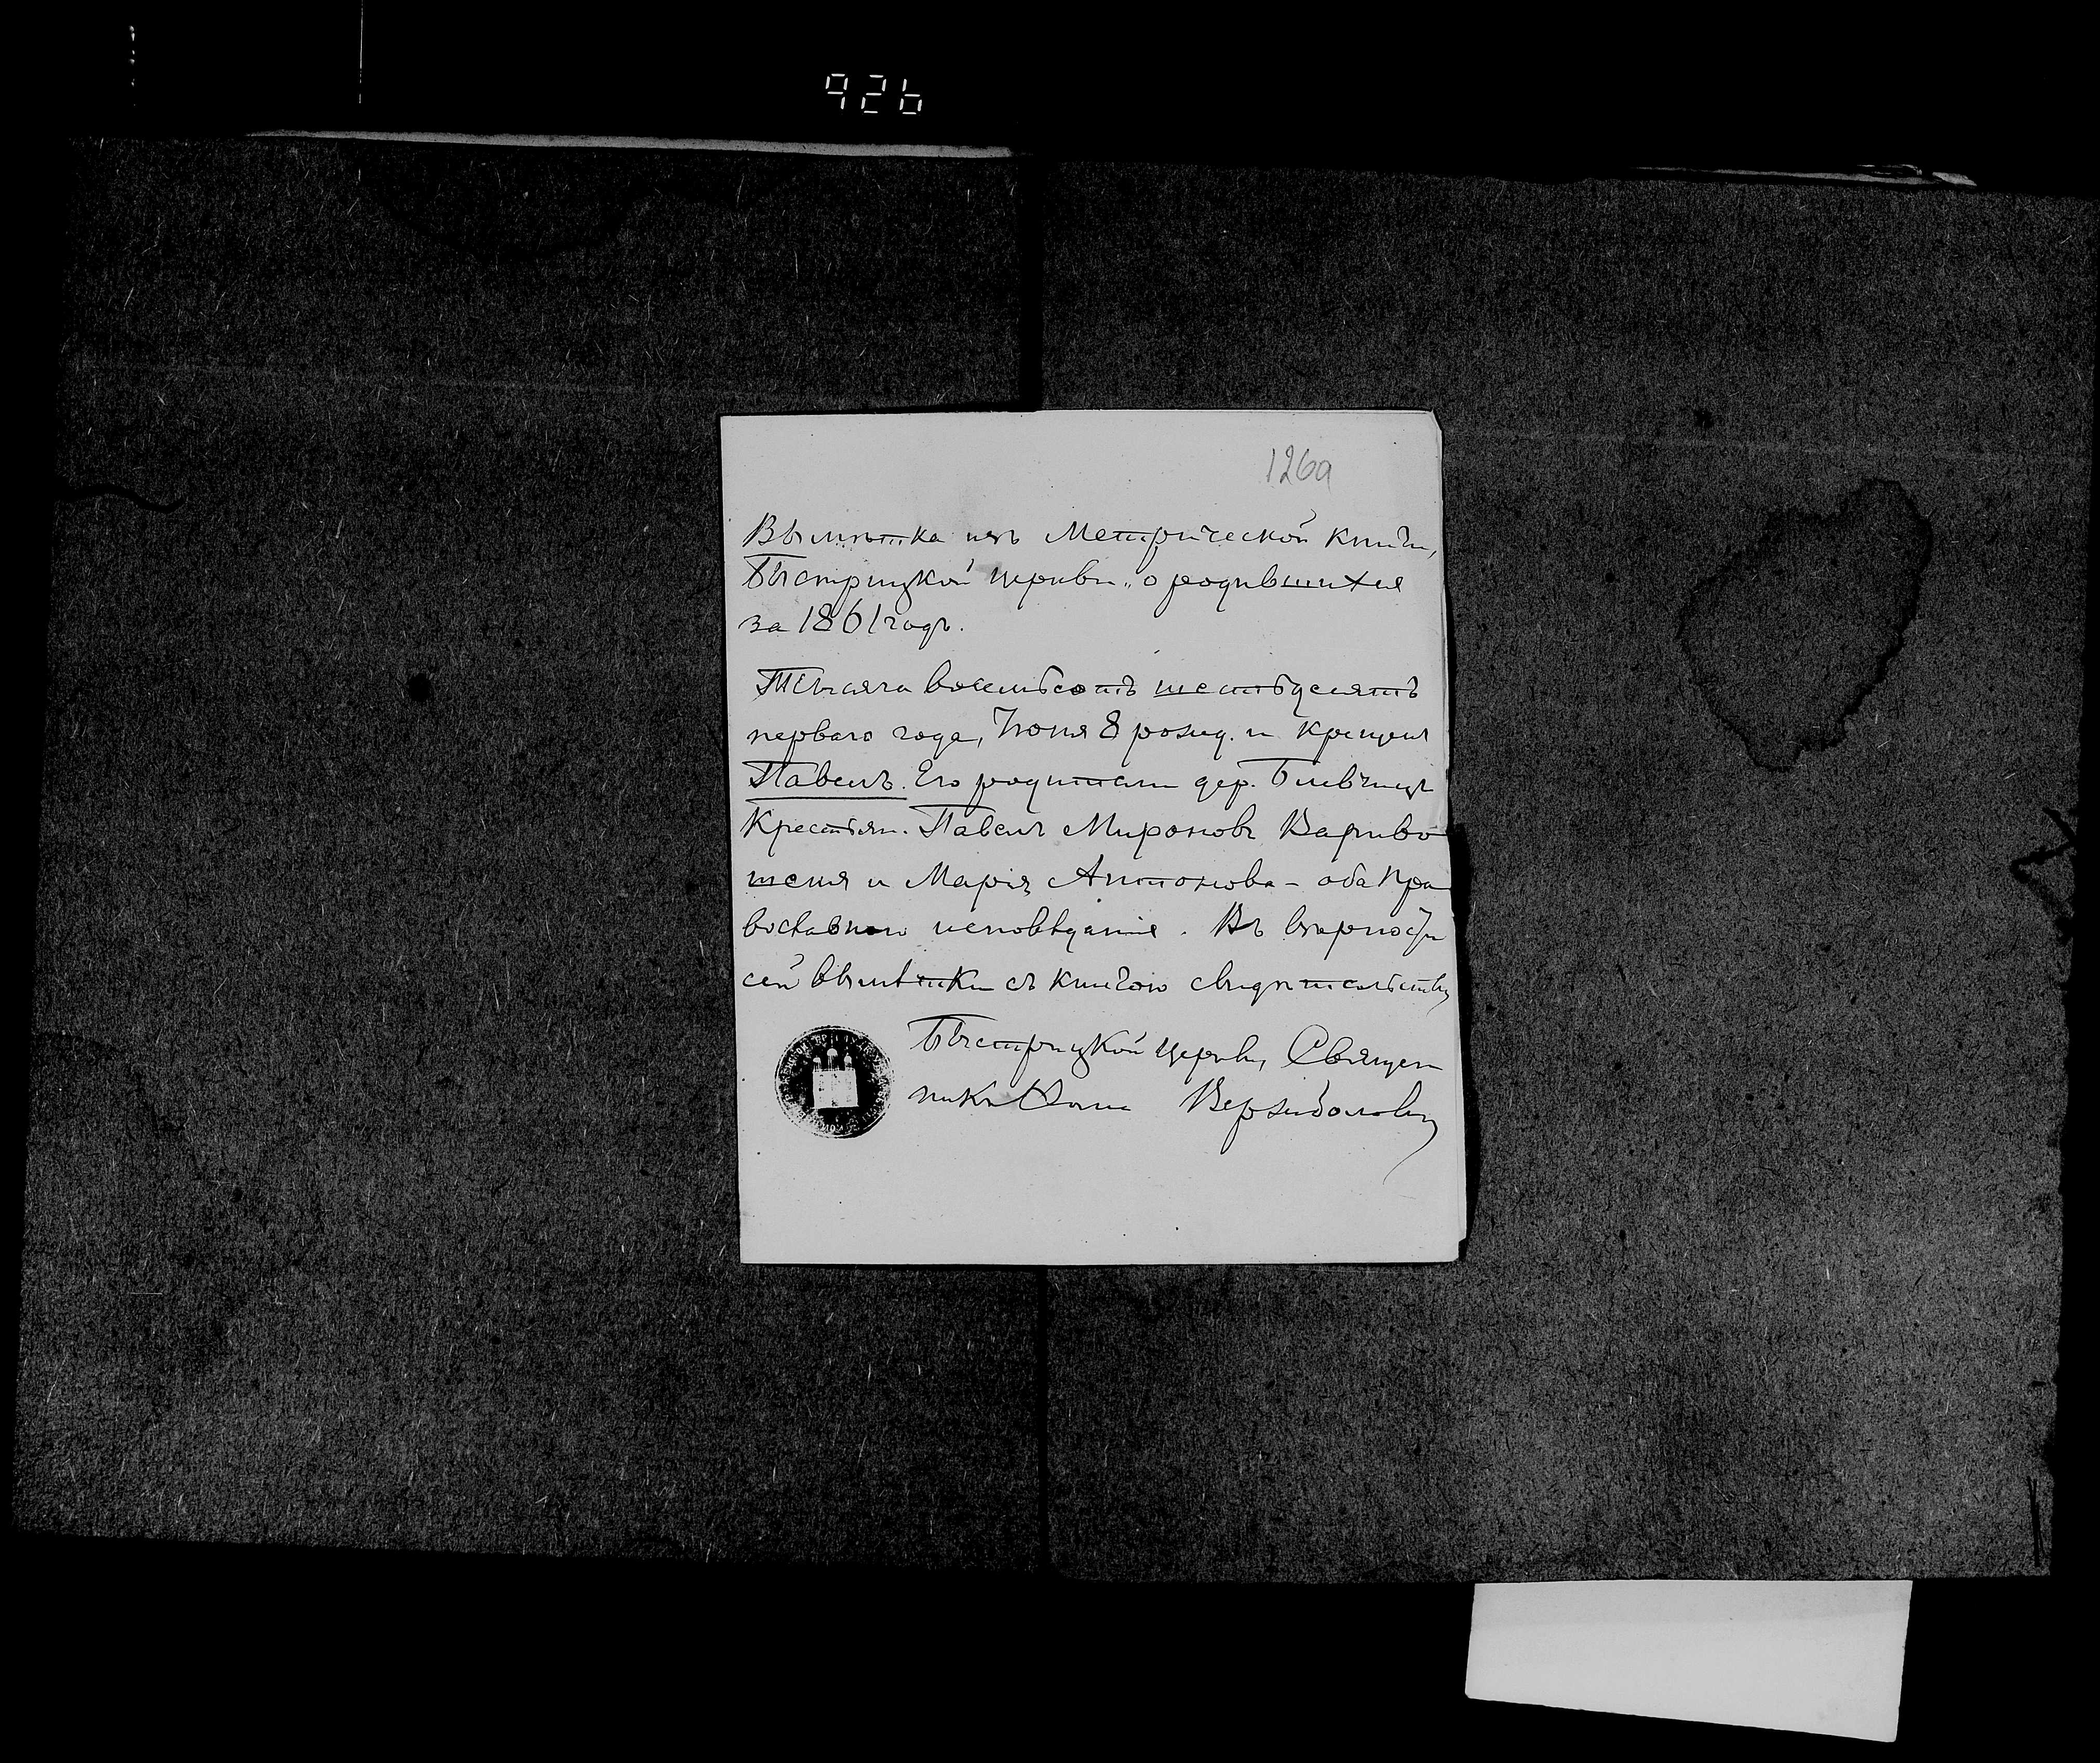 926
126а
Вымѣтка изъ Метрической книги,
Быстрицкой церкви „о родившихся
за 1861 годъ.
Тысяча восемьсотъ шестьдесятъ
перваго года, Іюня 8 рожд. и крещенъ
Павелъ. Его родители дер.
Крестьян. Павелъ Мироновъ Вариво
шеня и Марія Антонова – оба Пра
вославнаго исповѣданія. Въ вѣрности
сей вымѣтки съ книгою свидѣтельствую
Быстрицкой Церкви, Священ
никъ